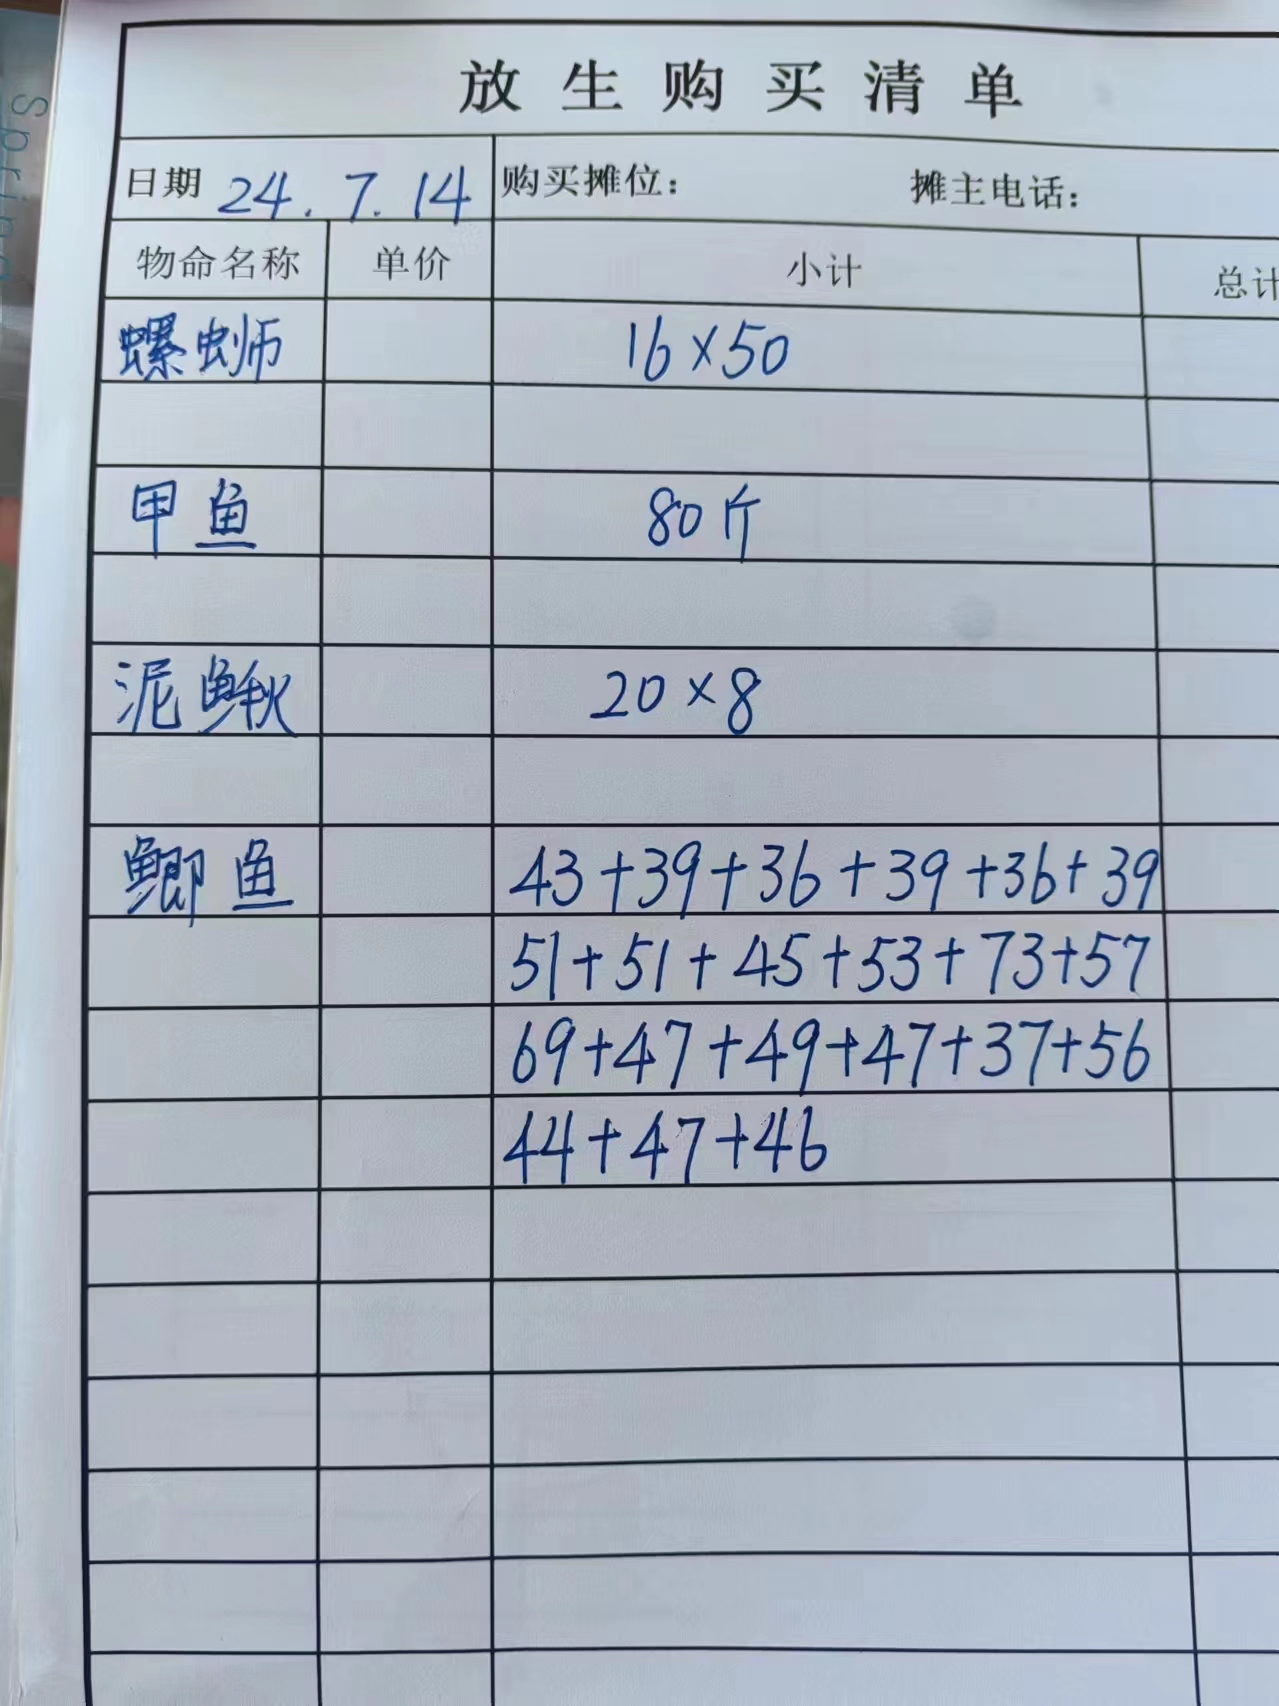 放生购买清单
日期 24.7.14 购买摊位： 摊主电话：
物命名称 单价 小计 总计
螺蛳 16×50
甲鱼 80斤
泥鳅 20×8
鲫鱼 43+39+36+39+36+39
51+51+45+53+73+57
69+47+49+47+37+56
44+47+46
Spring